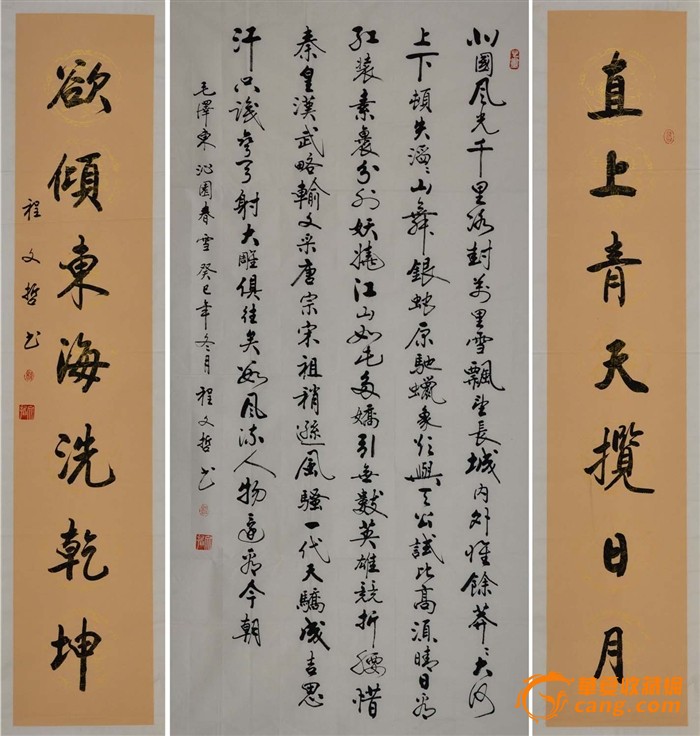 直上青天攬日月
北國风光千里冰封萬里雪飄望長城内外惟餘莽〻大河
上下頓失滔〻山舞銀蛇原馳蠟象欲與天公試比高須晴日看
紅裝素裹分外妖嬈江山如此多嬌引無數英雄競折腰惜
秦皇漢武略輸文采唐宗宋祖稍遜風騷一代天驕成吉思
汗只識彎弓射大雕俱往矣數风流人物還看今朝
毛澤東沁園春雪癸巳年冬月程文哲书
欲傾東海洗乾坤
程文哲书
華夏收藏網
cang.com